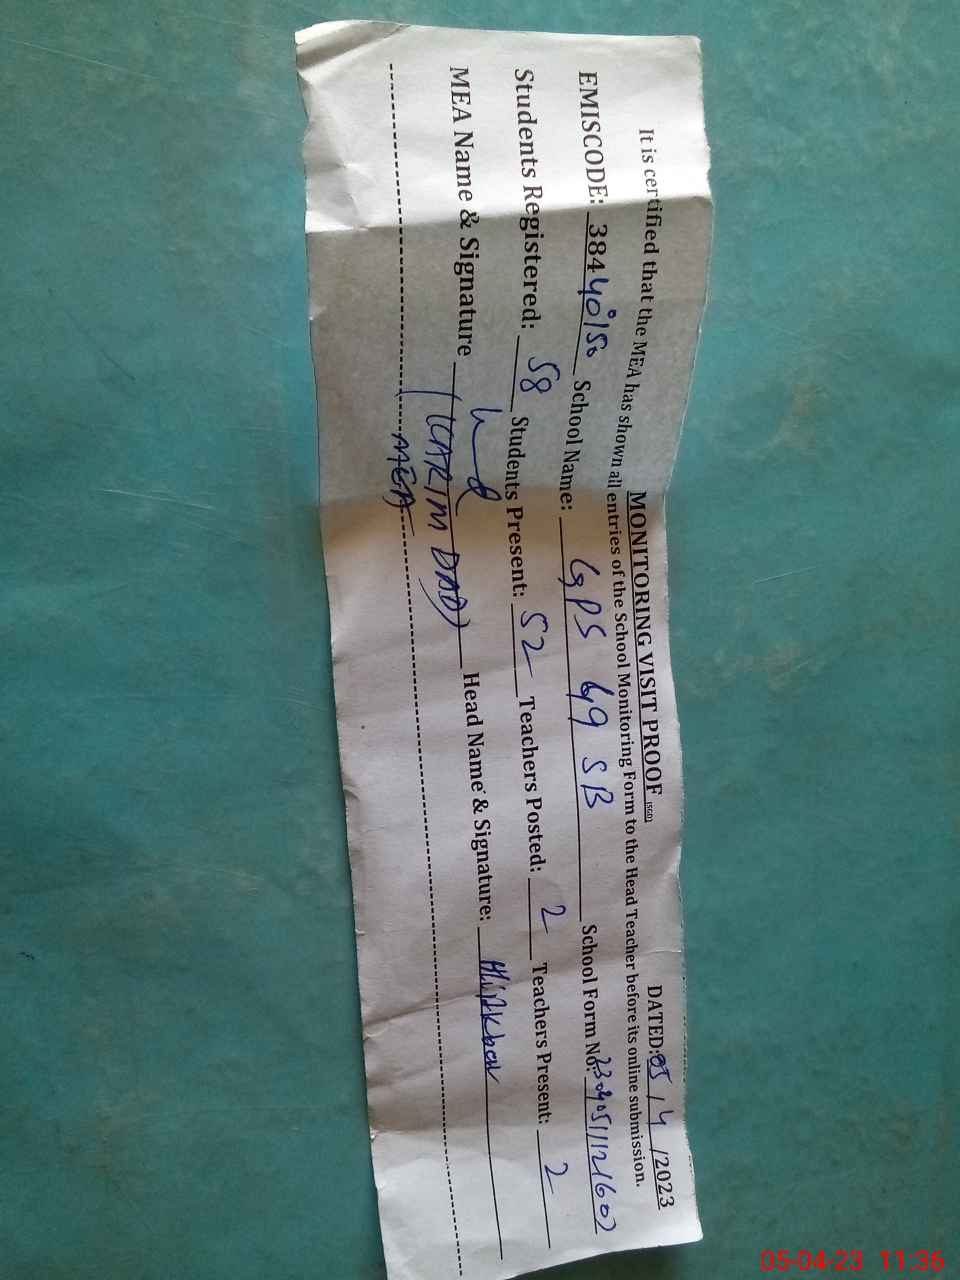 MONITORING VISIT PROOF (SGD) DATED: 05/4/2023
It is certified that the MEA has shown all entries of the School Monitoring Form to the Head Teacher before its online submission.
EMISCODE: 38440150 School Name: GPS 49 SB School Form No:
Students Registered: 58 Students Present: 52 Teachers Posted: 2 Teachers Present: 2
MEA Name & Signature (KARIM DAD) Head Name & Signature:
MEA
05-04-23 11:36